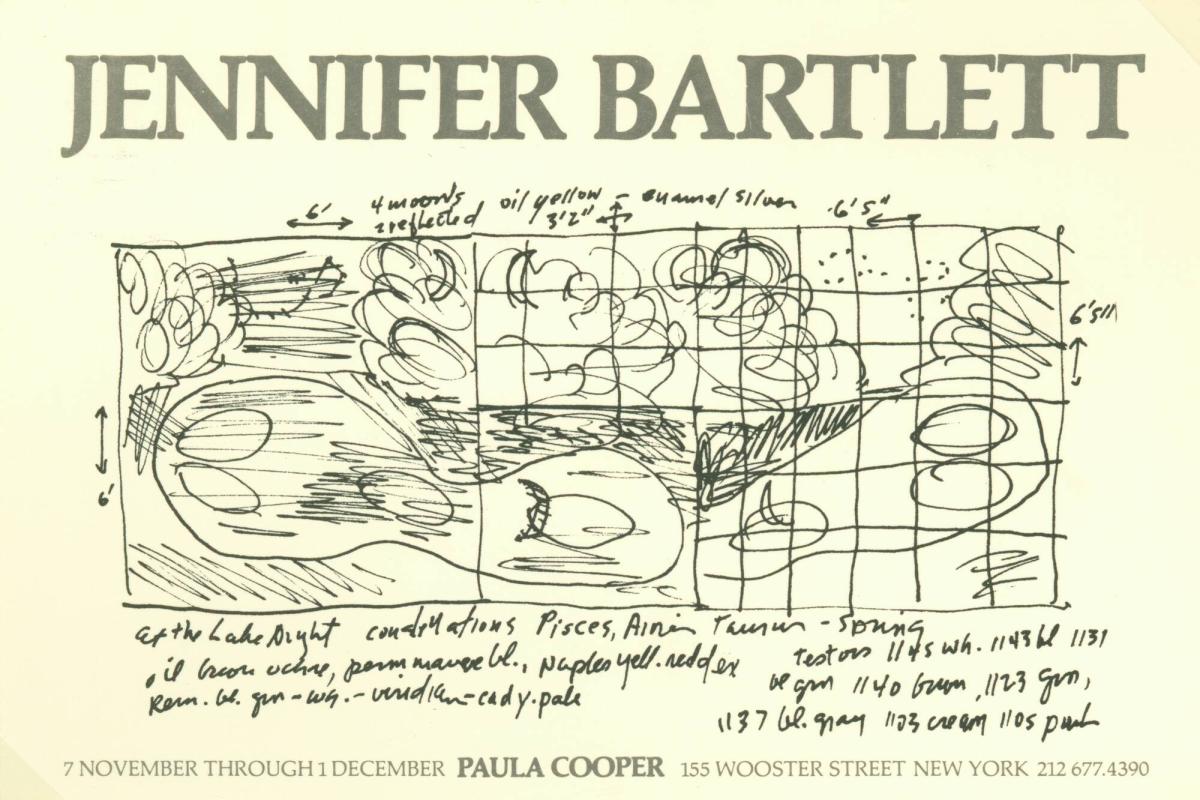 JENNIFER BARTLETT
6' 4 moons oil yellow - enamel silver 6'5"
2 reflected 3'2"
6'5"
6'
at the Lake Night constellations Pisces, Aries Taurus - Spring
oil brown ochre, perm mauve bl., naples yell. redd ex
Rem. bl. grn - wh. - viridian - cad y. pale
testors 1145 wh. 1143 bl 1131
bl grn 1140 brown, 1123 grn,
1137 bl. gray 1103 cream 1105
7 NOVEMBER THROUGH 1 DECEMBER PAULA COOPER 155 WOOSTER STREET NEW YORK 212 677.4390